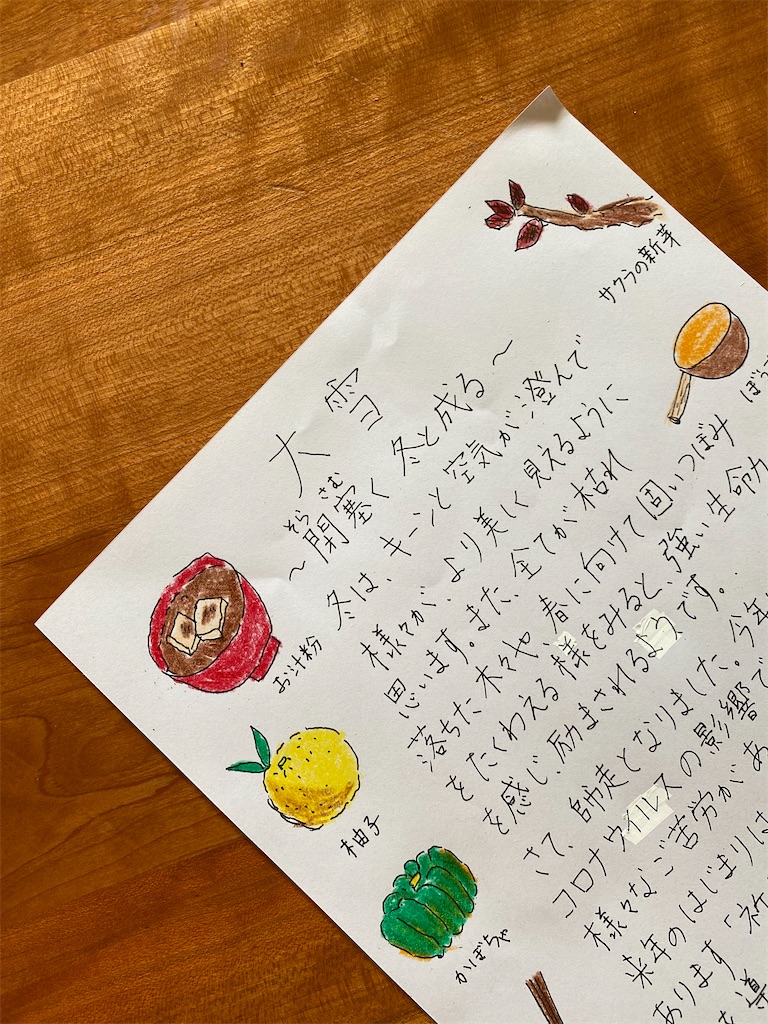 サクラの新芽
ぼう
大雪
～閉塞く 冬と成る～
そらさむ
冬は、キーンと空気が澄んで
様々が、より美しく見えるように
思います。また、全てが枯れ
落ちた木々や、春に向けて固いつぼみ
をたくわえる様をみると、強い生命力
を感じ、励まされるようです。
さて、師走となりました。今年
コロナウイルスの影響で
様々なご苦労があ
来年のはじまりは
あります「ネ
を導
お汁粉
柚子
かぼちゃ